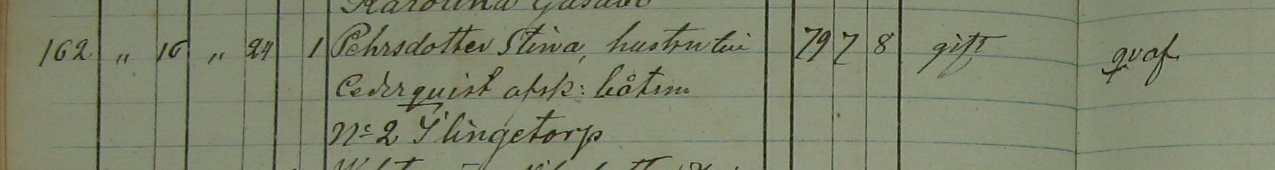 Karolina Gustaf
162 „ 16 „ 24 1 Pehrsdotter Stina, hustru till 79 7 8 gift qvaf
Cederquist afsk: båtsm
No 2 Slingetorp